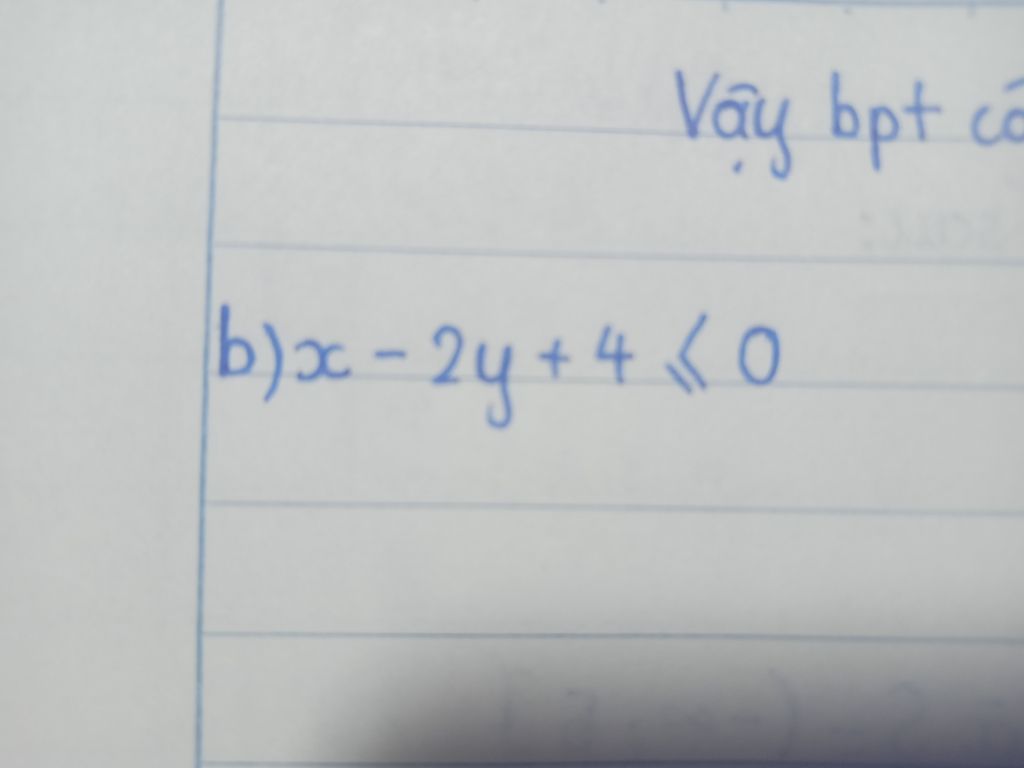 Vậy bpt có
b) x - 2y + 4 ⩽ 0